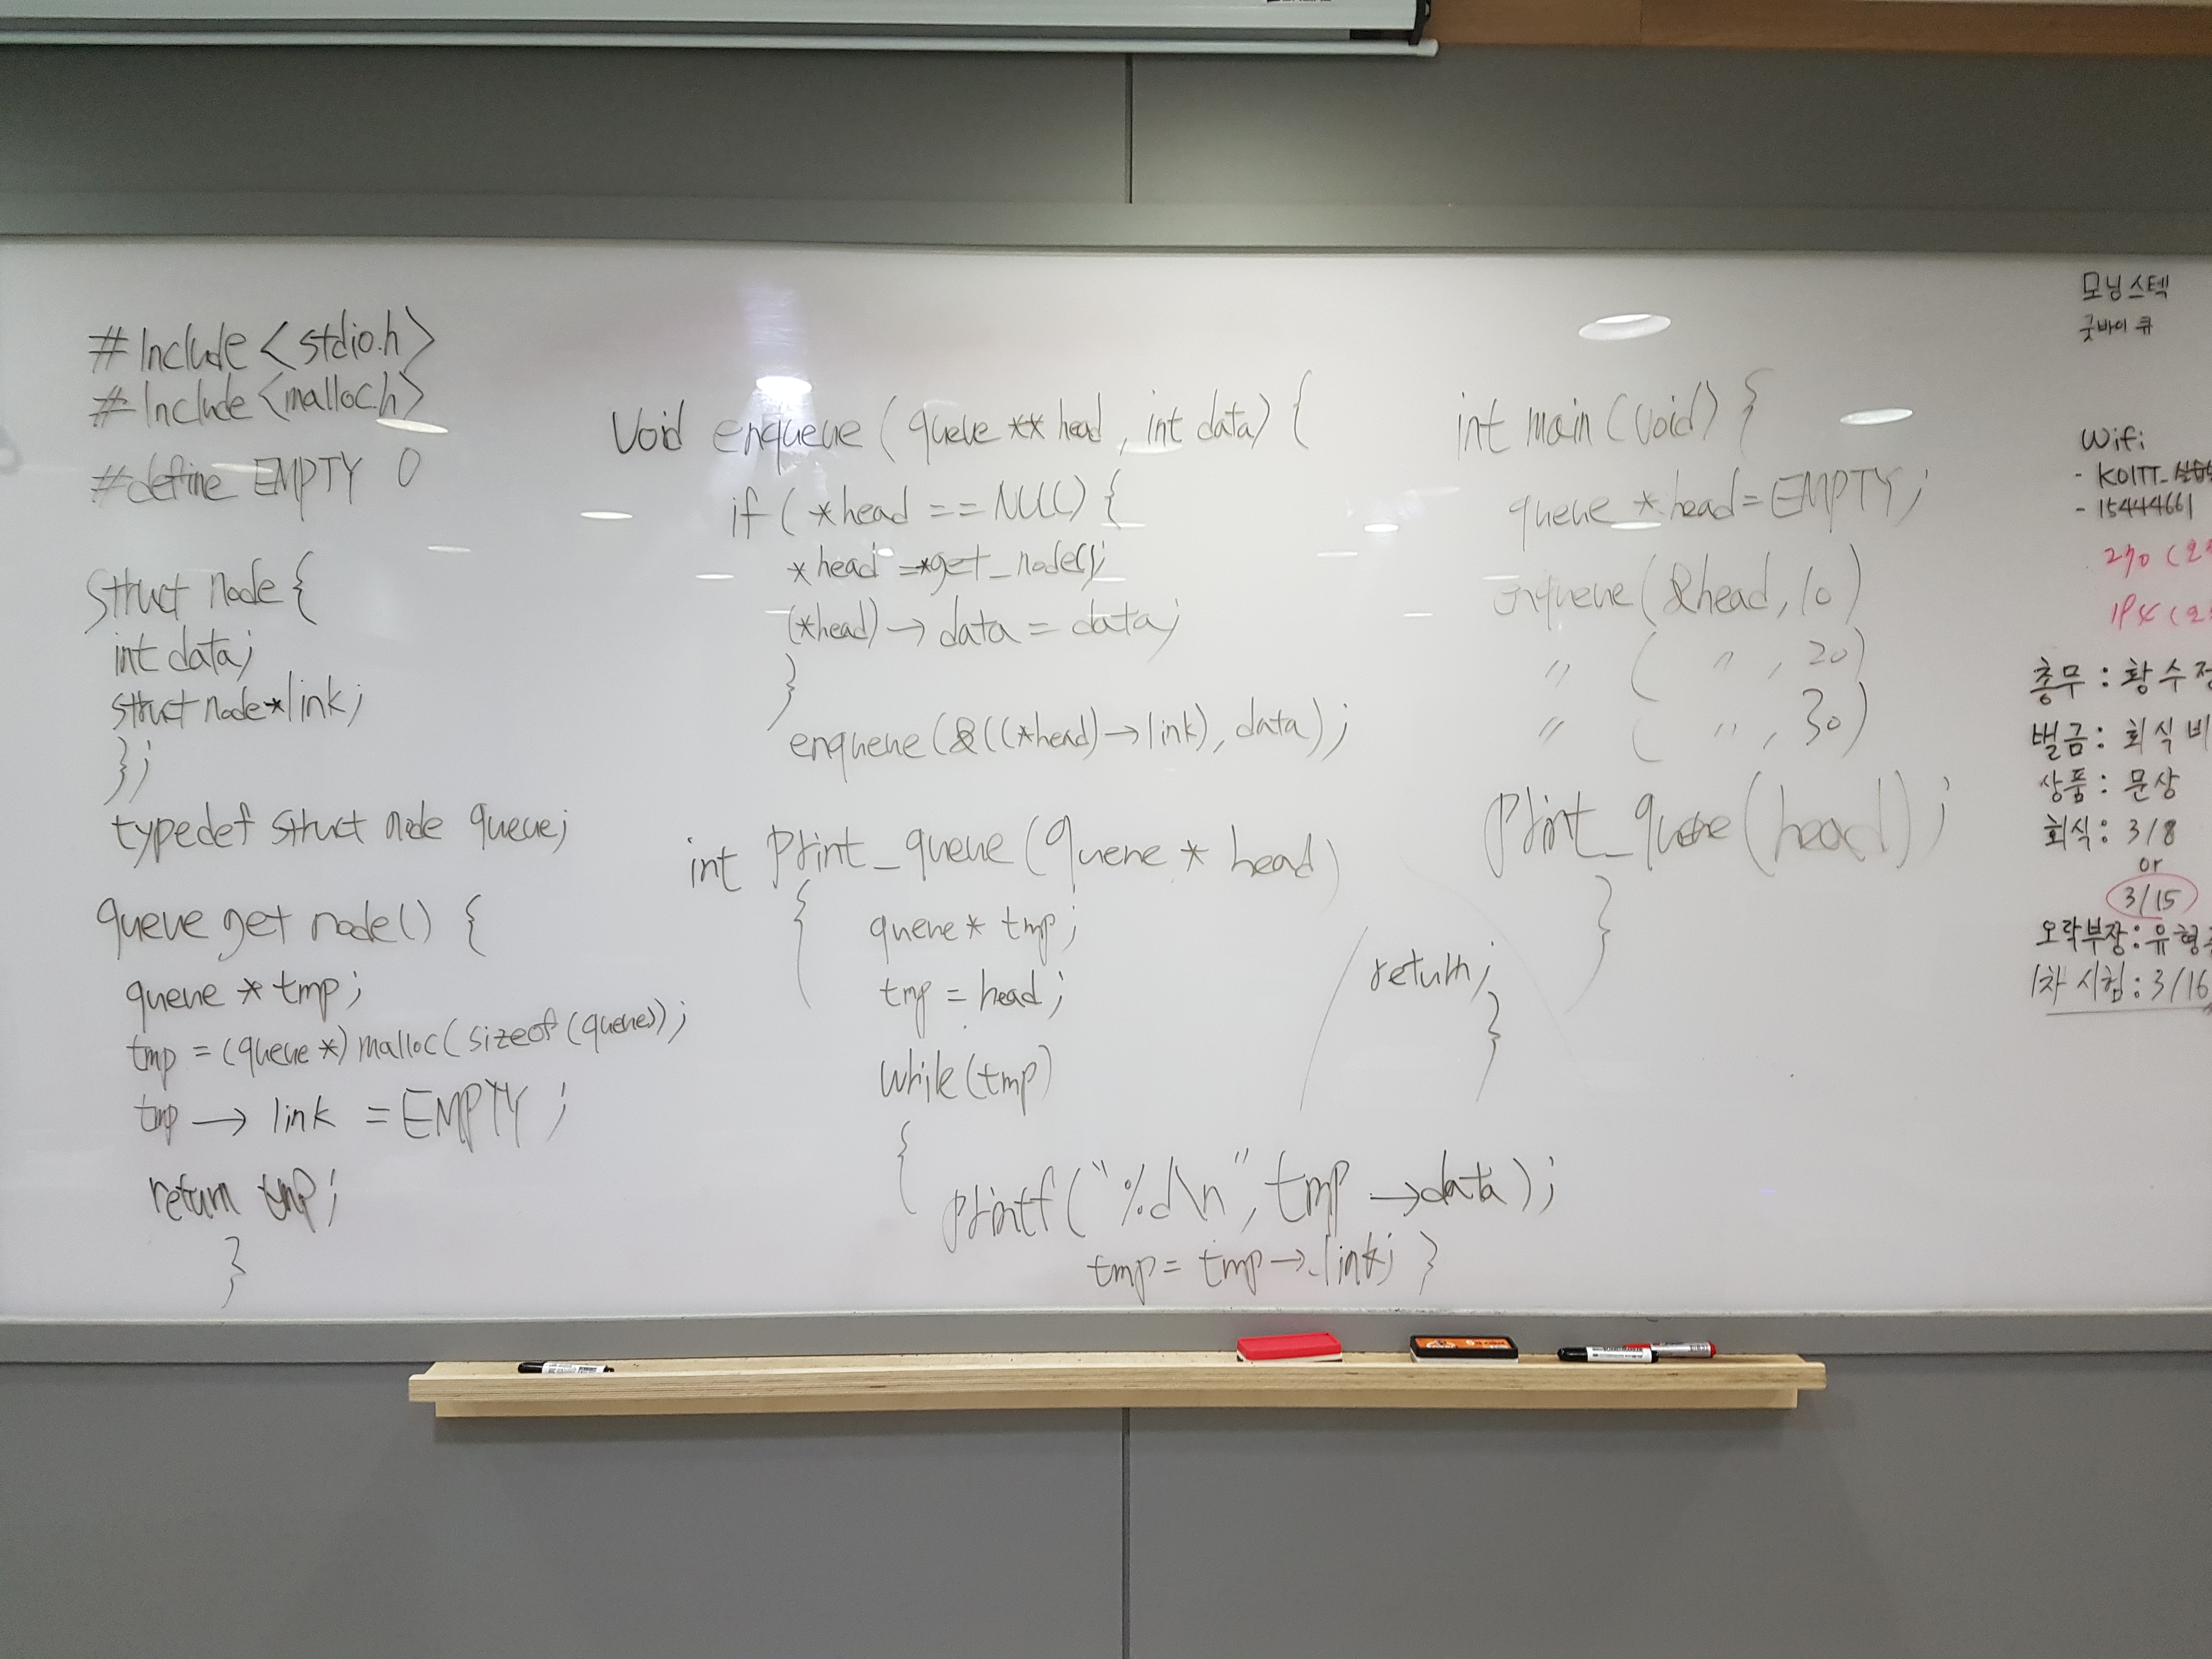 #Include <stdio.h>
#Include <malloc.h>
#define EMPTY 0
struct node {
int data;
struct node*link;
};
typedef struct node queue;
queue get node() {
queue * tmp;
tmp = (queue *) malloc(sizeof(queue));
tmp → link = EMPTY ;
return tmp;
}
Void enqueue ( queue ** head , int data) {
if ( *head == NULL) {
*head =*get_node();
(*head) → data = data;
}
enqueue (&((*head)→link), data);
int Print_queue (queue * head)
{
queue * tmp;
tmp = head;
while (tmp)
{
printf("%d\n", tmp →data);
tmp = tmp →link; }
return;
}
int main (void) {
queue * head = EMPTY;
enqueue (&head, 10)
〃 ( 〃 , 20)
〃 ( 〃 , 30)
Print_queue (head) ;
}
모닝 스텍
굿바이 큐
Wifi
- KOITT_실습
- 15444661
270 (오
194 (오
총무 : 황수정
벌금 : 회식비
상품 : 문상
회식 : 3/8
or
3/15
오락부장 : 유형
1차 시험 : 3/16